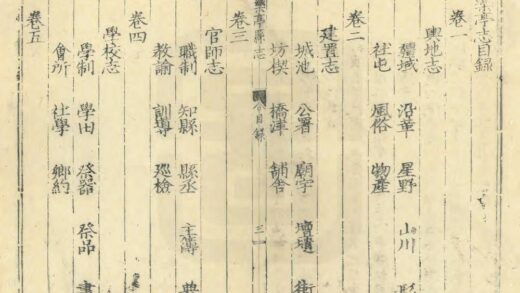 樂亭志目錄
卷一
輿地志
疆域 沿革 星野 山川 形
社屯 風俗 物產
卷二
建置志
城池 公署 廟宇 壇壝 街
坊楔 橋津 舖舍
樂亭縣志 今目錄 三
卷三
官師志
職制 知縣 縣丞 主簿 典
教諭 訓導 巡檢
卷四
學校志
學制 學田 祭器 祭品 書
會所 社學 鄉約
卷五